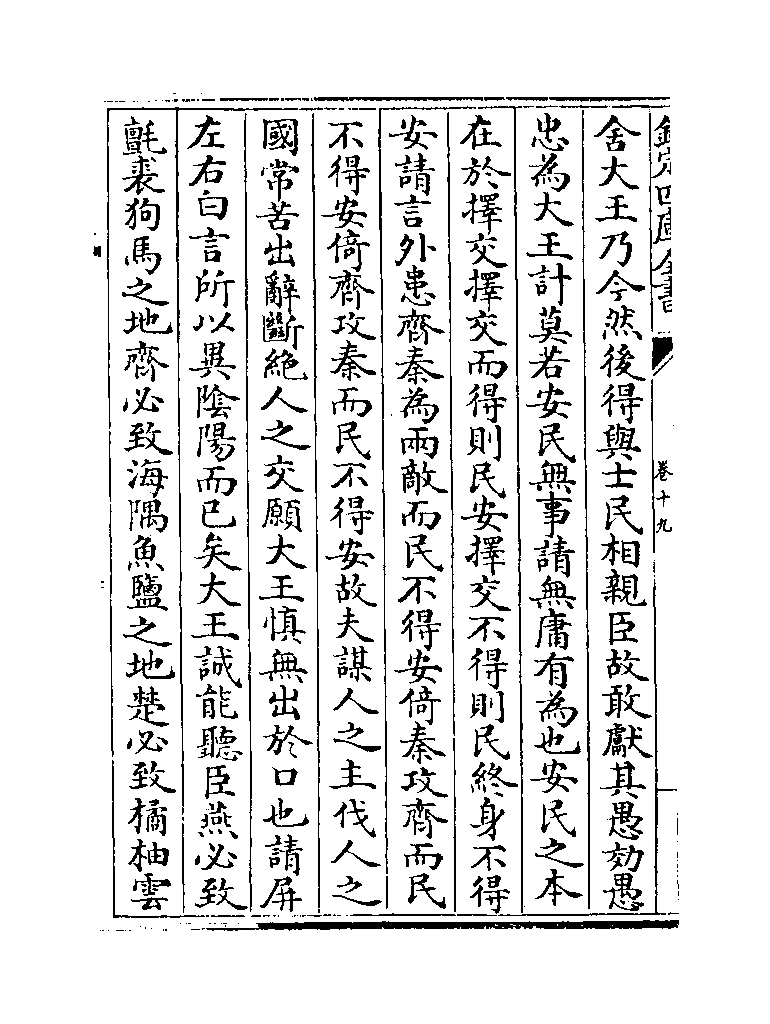 欽定四庫全書
卷十九
舍大王乃今然後得與士民相親臣故敢獻其愚効愚
忠為大王計莫若安民無事請無庸有為也安民之本
在於擇交擇交而得則民安擇交不得則民終身不得
安請言外患齊秦為兩敵而民不得安倚秦攻齊而民
不得安倚齊攻秦而民不得安故夫謀人之主伐人之
國常苦出辭斷絶人之交願大王慎無出於口也請屏
左右白言所以異隂陽而已矣大王誠能聽臣燕必致
氈裘狗馬之地齊必致海隅魚鹽之地楚必致橘柚雲